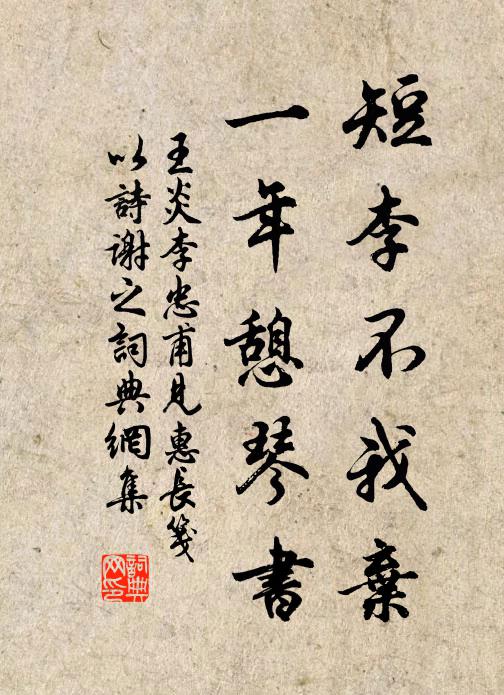 短李不我棄
一年憩琴書
王炎李忠甫見惠長箋
以詩謝之詞典網集
詞典
网印